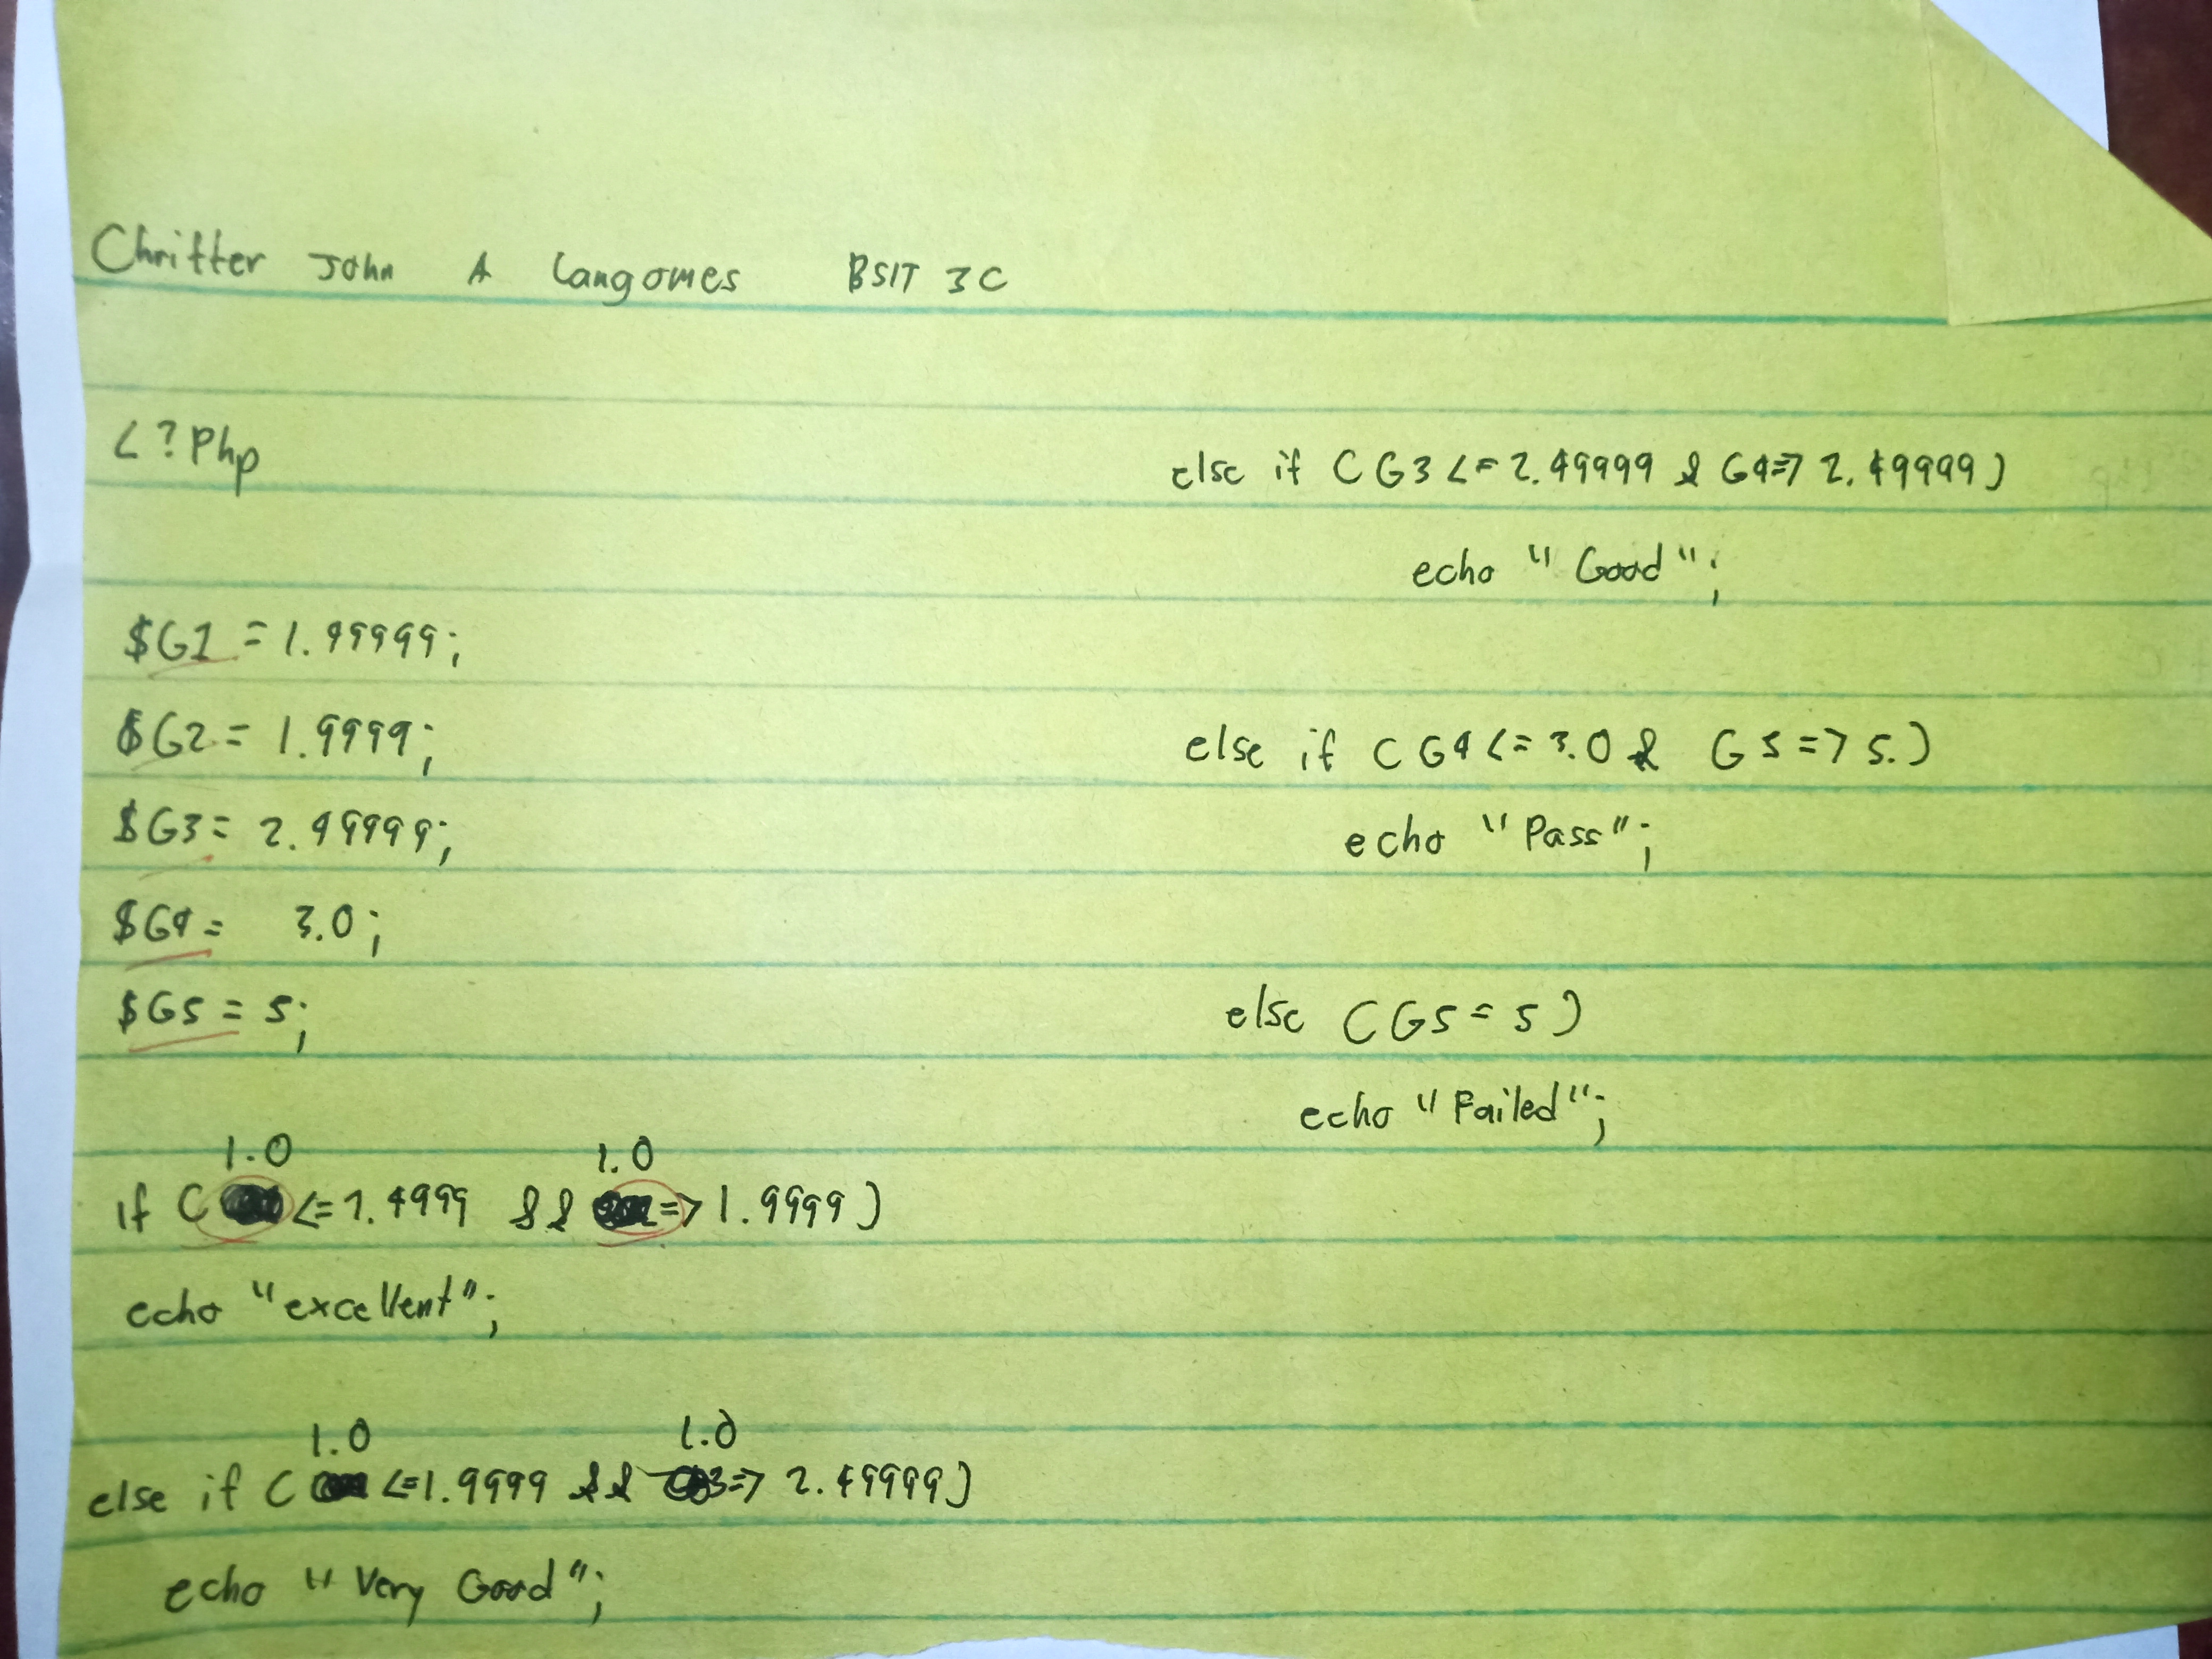 Chritter John A Langomes BSIT 3C
<?Php
$G1 = 1.49999;
$G2 = 1.9999;
$G3 = 2.49999;
$G4 = 3.0;
$G5 = 5;
1.0 1.0
if ( <= 1.4999 && => 1.9999)
echo "excellent";
1.0 1.0
else if ( <=1.9999 && => 2.49999)
echo "Very Good";
else if (G3 <= 2.49999 & G4=> 2.49999)
echo "Good";
else if (G4 <= 3.0 & G5 => 5.)
echo "Pass";
else (G5 = 5)
echo "Failed";